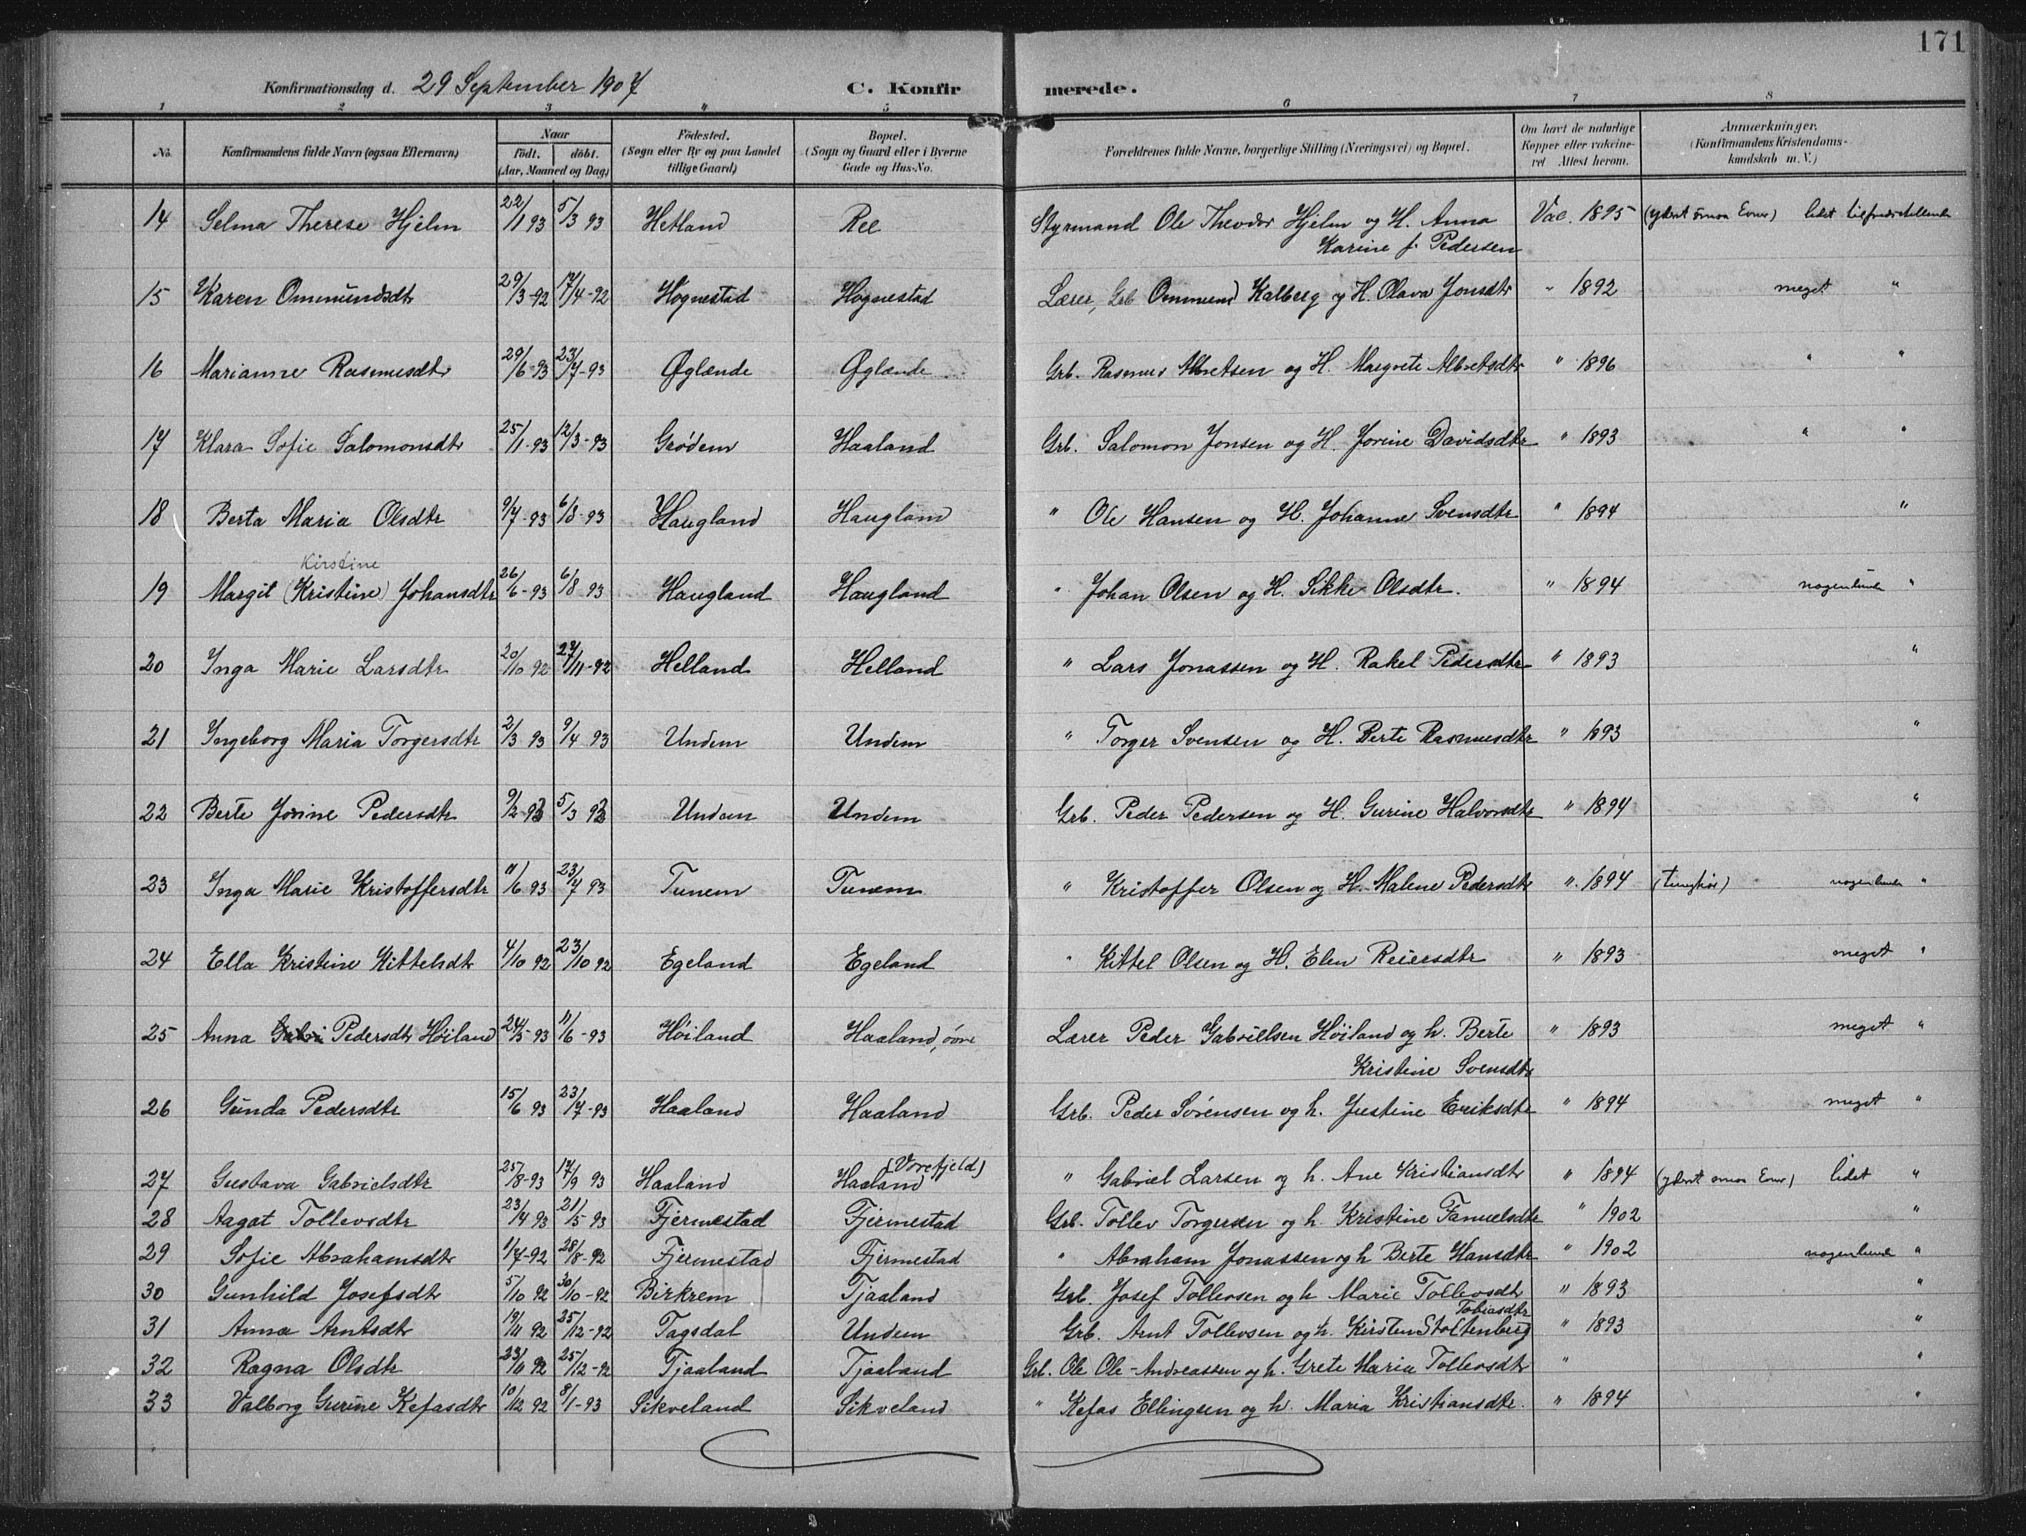 171
Konfirmationsdag d. 29 September 1907 C. Konfirmerede.
1 2 3 4 5 6 7 8
No. Konfirmandens fulde Navn (ogsaa Efternavn) Naar födt. döbt. (Aar, Maaned og Dag) Födested. (Sogn eller By og paa Landet tillige Gaard) Bopæl. (Sogn og Gaard eller i Byerne Gade og Hus-No. Forældrenes fulde Navne, borgerlige Stilling (Næringsvei) og Bopæl. Om havt de naturlige Kopper eller vakcineret Attest herom. Anmærkninger. (Konfirmandens Kristendomskundskab m. V.)
14 Selma Therese Hjelm 22/1 93 5/3 93 Hetland Ree Styrmand Ole Theodor Hjelm og H. Anna Vac. 1895 (yderst smaa Evner) lidet tilfredsstillende
Karine f. Pedersen
15 Karen Ommundsdtr 29/3-92 17/4-92 Hognestad Hognestad Lærer, Grb Ommund Kalberg og H. Olava Jonsdtr " 1892 meget "
16 Marianne Rasmusdtr 29/6-93 23/7-93 Øglænde Øglænde Grb. Rasmus Albretsen og H. Margrete Albretsdtr " 1896 " "
17 Klara Sofie Salomonsdtr 25/1-93 12/3-93 Grødem Haaland Grb. Salomon Jonsen og H. Jorine Davidsdtr " 1893 " "
18 Berta Maria Olsdtr 9/7-93 6/8-93 Haugland Haugland " Ole Hansen og H. Johanne Svensdtr " 1894 "
Kirstine
19 Margit (Kristine) Johansdtr 26/6-93 6/8 93 Haugland Haugland " Johan Olsen og H. Sikke Olsdtr. " 1894 nogenlunde "
20 Inga Marie Larsdtr 20/10 92 27/11-92 Helland Helland " Lars Jonassen og H. Rakel Pedersdtr " 1893 "
21 Ingeborg Maria Torgersdtr 2/3 93 9/4 93 Undem Undem " Torger Svensen og H. Berte Rasmusdtr " 1893 "
22 Berte Jorine Pedersdtr 9/2-93 5/3 93 Undem Undem Grb. Peder Pedersen og H. Gurine Halvorsdtr " 1894 "
23 Inga Marie Kristoffersdtr 11/6 93 23/7 93 Tunem Tunem " Kristoffer Olsen og H. Malene Pedersdtr " 1894 (tunghør) nogenlunde "
24 Ella Kristine Kittelsdtr 4/10 92 23/10 92 Egeland Egeland " Kittel Olsen og H. Elen Reiersdtr " 1893 meget "
25 Anna Pedersdtr Høiland 24/5-93 11/6-93 Høiland Haaland, övre Lærer Peder Gabrielsen Høiland og h. Berte " 1893 meget "
Kristine Svensdtr
26 Gunda Pedersdtr 15/6 93 23/7-93 Haaland Haaland Grb. Peder Sørensen og h. Justine Eriksdtr " 1894 meget "
(Vorefjeld)
27 Gustava Gabrielsdtr 25/8-93 17/9 93 Haaland Haaland " Gabriel Larsen og h. Ane Kristiansdtr " 1894 (yderst smaa Evner) lidet "
28 Aagat Tollevsdtr 23/4 93 21/5-93 Fjermestad Fjermestad Grb. Tollev Torgersen og h. Kristine Fanuelsdtr " 1902 "
29 Sofie Abrahamsdtr 1/7-92 28/8-92 Fjermestad Fjermestad " Abraham Jonassen og h Berte Hansdtr " 1902 nogenlunde "
30 Gunhild Josefsdtr 5/10 92 30/10-92 Birkrem Tjaaland Grb. Josef Tollevsen og h Marie Tollevsdtr " 1893 "
Tobiasdtr
31 Anna Arntsdtr 19/11 92 25/12-92 Tagsdal Undem Grb. Arnt Tollevsen og h. Kirsten Stoltenberg " 1893 "
32 Ragna Olsdtr 23/11 92 25/12-92 Tjaaland Tjaaland Grb. Ole Ole-Andreassen og h. Grete Maria Tollevsdtr " "
33 Valborg Gurine Kefasdtr 10/12 92 8/1-93 Sikveland Sikveland " Kefas Ellingsen og h. Maria Kristiansdtr. " 1894 "